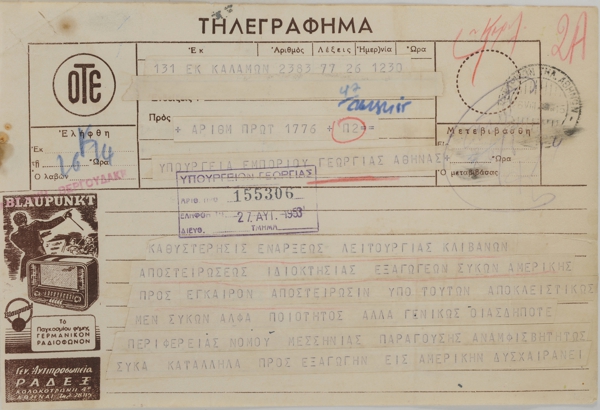 ΤΗΛΕΓΡΑΦΗΜΑ
2Α
Εκ Αριθμός Λέξεις Ημερ)νία Ώρα
131 ΕΚ ΚΑΛΑΜΩΝ 2383 77 26 1230
ΟΤΕ
Πρὸς
+ ΑΡΙΘΜ ΠΡΩΤ 1776 + Π2==
ΥΠΟΥΡΓΕΙΑ ΕΜΠΟΡΙΟΥ ΓΕΩΡΓΙΑΣ ΑΘΗΝΑΣ+
Ἐλήφθη
Ἐκ
Ὥρα:
Ὁ λαβών
Μετεβιβάσθη
Ὥρα
Ὁ μεταβιβάσας
ΥΠΟΥΡΓΕΙΟΝ ΓΕΩΡΓΙΑΣ
ΑΡΙΘ. ΠΡΩ. 155306
ΕΛΗΦΘΗ ΤΗ 27 ΑΥΓ. 1953
ΔΙΕΥΘ. ΤΜΗΜΑ
BLAUPUNKT
Τὸ
Παγκοσμίου φήμης
ΓΕΡΜΑΝΙΚΟΝ
ΡΑΔΙΟΦΩΝΟΝ
Γεν. Ἀντιπροσωπεία
ΡΑΔΕΞ
ΚΟΛΟΚΟΤΡΩΝΗ
ΑΘΗΝΑΙ
ΚΑΘΥΣΤΕΡΗΣΙΣ ΕΝΑΡΞΕΩΣ ΛΕΙΤΟΥΡΓΙΑΣ ΚΛΙΒΑΝΩΝ
ΑΠΟΣΤΕΙΡΩΣΕΩΣ ΙΔΙΟΚΤΗΣΙΑΣ ΕΞΑΓΩΓΕΩΝ ΣΥΚΩΝ ΑΜΕΡΙΚΗΣ
ΠΡΟΣ ΕΓΚΑΙΡΟΝ ΑΠΟΣΤΕΙΡΩΣΙΝ ΥΠΟ ΤΟΥΤΩΝ ΑΠΟΚΛΕΙΣΤΙΚΩΣ
ΜΕΝ ΣΥΚΩΝ ΑΛΦΑ ΠΟΙΟΤΗΤΟΣ ΑΛΛΑ ΓΕΝΙΚΩΣ ΟΙΑΣΔΗΠΟΤΕ
ΠΕΡΙΦΕΡΕΙΑΣ ΝΟΜΟΥ ΜΕΣΣΗΝΙΑΣ ΠΑΡΑΓΟΥΣΗΣ ΑΝΑΜΦΙΣΒΗΤΗΤΩΣ
ΣΥΚΑ ΚΑΤΑΛΛΗΛΑ ΠΡΟΣ ΕΞΑΓΩΓΗΝ ΕΙΣ ΑΜΕΡΙΚΗΝ ΔΥΣΧΑΙΡΑΝΕΙ